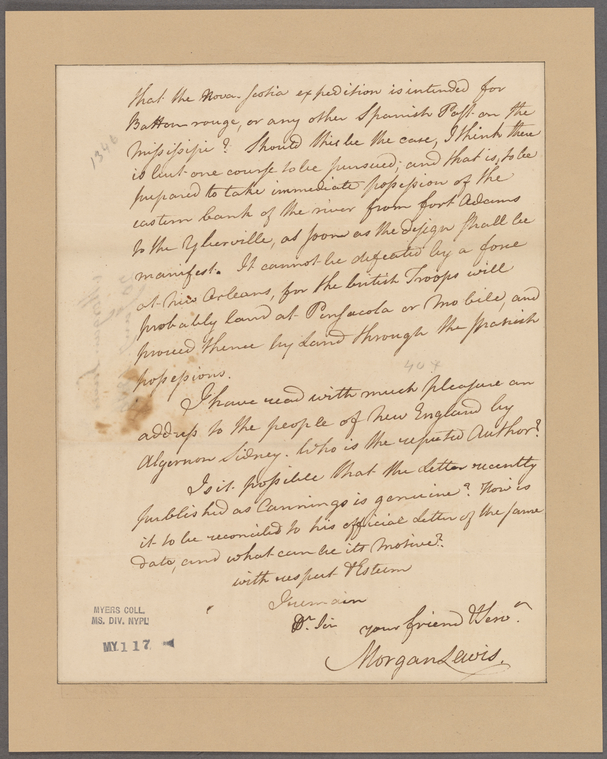 that the Nova-Scotia expedition is intended for
Batton rouge, or any other Spanish Post on the
Missisipie? Should this be the case, I think there
is but one course to be pursued; and that is, to be
prepared to take immediate possession of the
eastern bank of the river from Fort Adams
to the Yberville, as soon as the design shall be
manifest. It cannot be defeated by a force
at New Orleans, for the british Troops will
probably land at Pensacola or Mobile, and
proceed thence by Land through the Spanish
possessions.
I have read with much pleasure an
address to the people of New England by
Algernon Sidney. Who is the reputed Author?
Is it possible that the Letter recently
published as Cannings is genuine? How is
it to be reconciled to his official Letter of the same
date, and what can be its motive?
with respect & Esteem
I remain
Dr. Sir your friend & Servn
Morgan Lewis.
1346
407
MYERS COLL.
MS. DIV. NYPL
MY.117